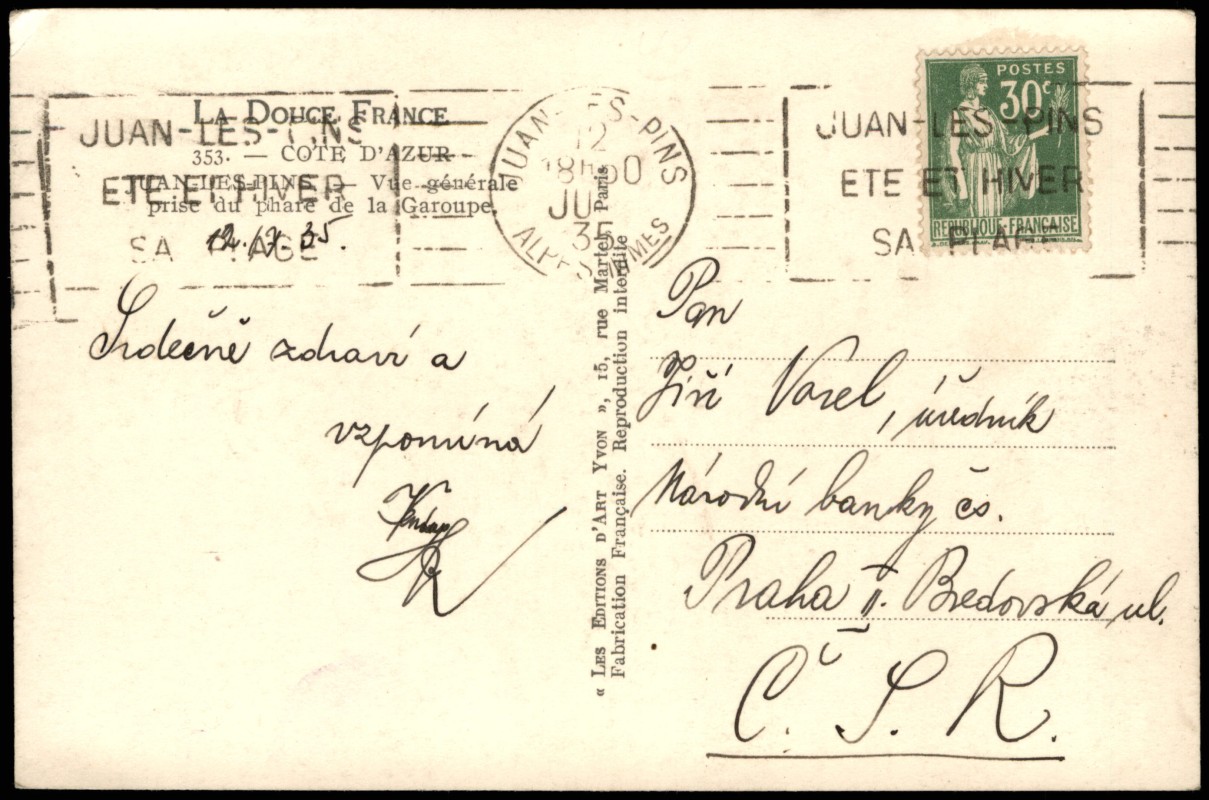 LA DOUCE FRANCE
353. — COTE D'AZUR
JUAN-LES-PINS. — Vue générale
prise du phare de la Garoupe.
JUAN-LES-PINS
ETE ET HIVER
SA PLAGE
12./7. 35.
JUAN-LES-PINS
12
18h30
JU
35
ALPES MMES
POSTES
30c
REPUBLIQUE FRANÇAISE
JUAN-LES-PINS
ETE ET HIVER
SA PLAGE
Srdečně zdraví a
vzpomíná
« LES EDITIONS D'ART YVON », 15, rue Martel, Paris
Fabrication Française. Reproduction interdite
Pan
Jiří Vosel, úředník
Národní banky čs.
Praha II. Bredovská ul.
Č. S. R.